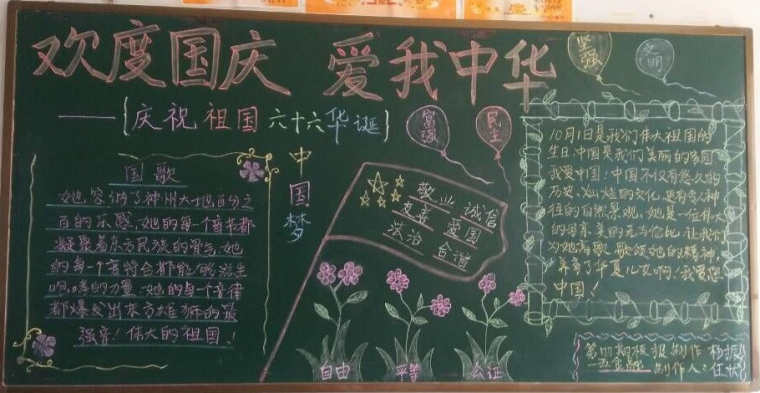 欢度国庆 爱我中华
——{庆祝祖国六十六华诞}
富强
民主
坚强
文明
中国梦
国歌
她容纳了神州大地百分之
百的乐感,她的每一个音节都
凝聚着东方民族的骨气,她
的每一个音符台都能够滋生
的力量,她的每一个音律
都爆发出东方雄狮的最
强音!伟大的祖国!
敬业 诚信
友善 爱国
法治 合谐
自由 平等 公证
10月1日是我们伟大祖国的
生日,中国是我们美丽的家园
我爱中国:中国不仅有悠久的
历史,灿烂的文化,更有令人神
往的自然景观,她是一位伟大
的母亲,美的无与伦比,让我们
为她高歌,歌颂她的精神,
养育了华夏儿女啊!我爱您
中国!
期板报制作
制作人:任